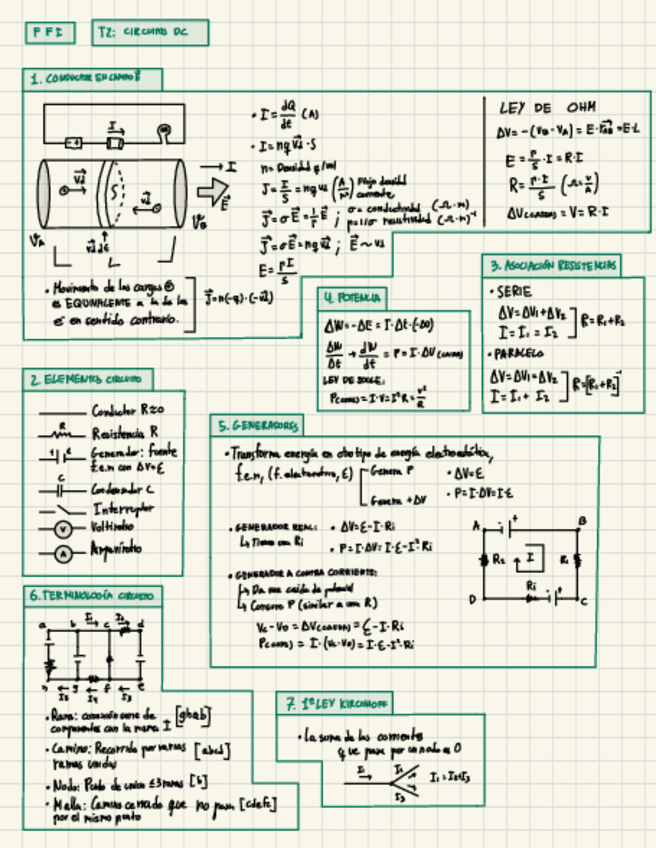 FFI
T2: CIRCUITOS DC
1. CONDUCTOR EN CAMPO E
I
vd
S
vd
I
E
VA
VB
vd dt
L
• Movimiento de las cargas ⊕
es EQUIVALENTE a la de los
e⁻ en sentido contrario.
J = n(-q)·(-vd)
• I = dQ/dt (A)
• I = nq vd · S
n = Densidad q/vol
J = I/S = nq vd (A/m²) Flujo densidad corriente
J = σE = 1/ρ E ; σ = conductividad (Ω·m)
ρ = 1/σ resistividad (Ω·m)⁻¹
J = σE = nq vd ; E ~ vd
E = ρI/S
LEY DE OHM
ΔV = -(VB - VA) = E·rAB = E·L
E = ρ/S · I = R·I
R = ρ·I/S (Ω = V/A)
ΔV(CAIDAS) = V = R·I
3. ASOCIACIÓN RESISTENCIAS
• SERIE
ΔV = ΔV1 + ΔV2
I = I1 = I2
R = R1 + R2
• PARALELO
ΔV = ΔV1 = ΔV2
I = I1 + I2
R = [R1 + R2]⁻¹
4. POTENCIA
ΔW = -ΔE = I·Δt·(-ΔV)
ΔW/Δt → dW/dt = P = I·ΔV (CAIDAS)
LEY DE JOULE:
P(CONS) = I·V = I²R = V²/R
2. ELEMENTOS CIRCUITO
Conductor R≈0
R
Resistencia R
Generador: fuente
f.e.m con ΔV = ε
C
Condensador C
Interruptor
V
Voltímetro
A
Amperímetro
5. GENERADORES
• Transforma energía en otro tipo de energía electrostática,
f.e.m, (f. electromotriz, ε)
Genera P
Genera +ΔV
• ΔV = ε
• P = I·ΔV = I·ε
• GENERADOR REAL:
↳ Tiene una Ri
• ΔV = ε - I·Ri
• P = I·ΔV = I·ε - I²·Ri
• GENERADOR A CONTRA CORRIENTE:
↳ Da una caída de potencial
↳ Consume P (similar a una R)
Vc - VD = ΔV(CAIDAS) = ε - I·Ri
P(CONS) = I·(Vc - VD) = I·ε - I²·Ri
A
B
R2
I
R1
Ri
D
C
6. TERMINOLOGÍA CIRCUITO
a b c d
I1 I2
h g f e
I5 I4 I3
• Rama: conexión serie de [ghab]
componentes con la misma I
• Camino: Recorrido por varias [abcd]
ramas unidas
• Nodo: Punto de unión ≤3 ramas [b]
• Malla: Camino cerrado que no pasa [cdefc]
por el mismo punto
7. 1ª LEY KIRCHHOFF
• La suma de las corrientes
q ue pasa por un nodo es 0
I1
I2
I3
I1 = I2 + I3